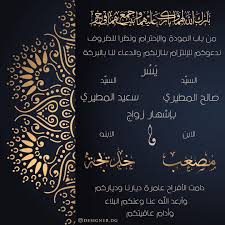 بارك الله لهما وبارك عليهما وجمع بينهما في خير
من باب المودة والإحترام ونظرا للظروف
ندعوكم للإلتزام بمنازلكم والدعاء لنا بالبركة
يَسُر
السيّد السيّد
صالح المطيري سعيد المطيري
بإشهار زواج
الابن الابنه
مصعب خديجة
دامت الأفراح عامرة ديارنا ودياركم
وأبعد الله عنا وعنكم البلاء
وأدام عافيتكم
@DESIGNER.DG